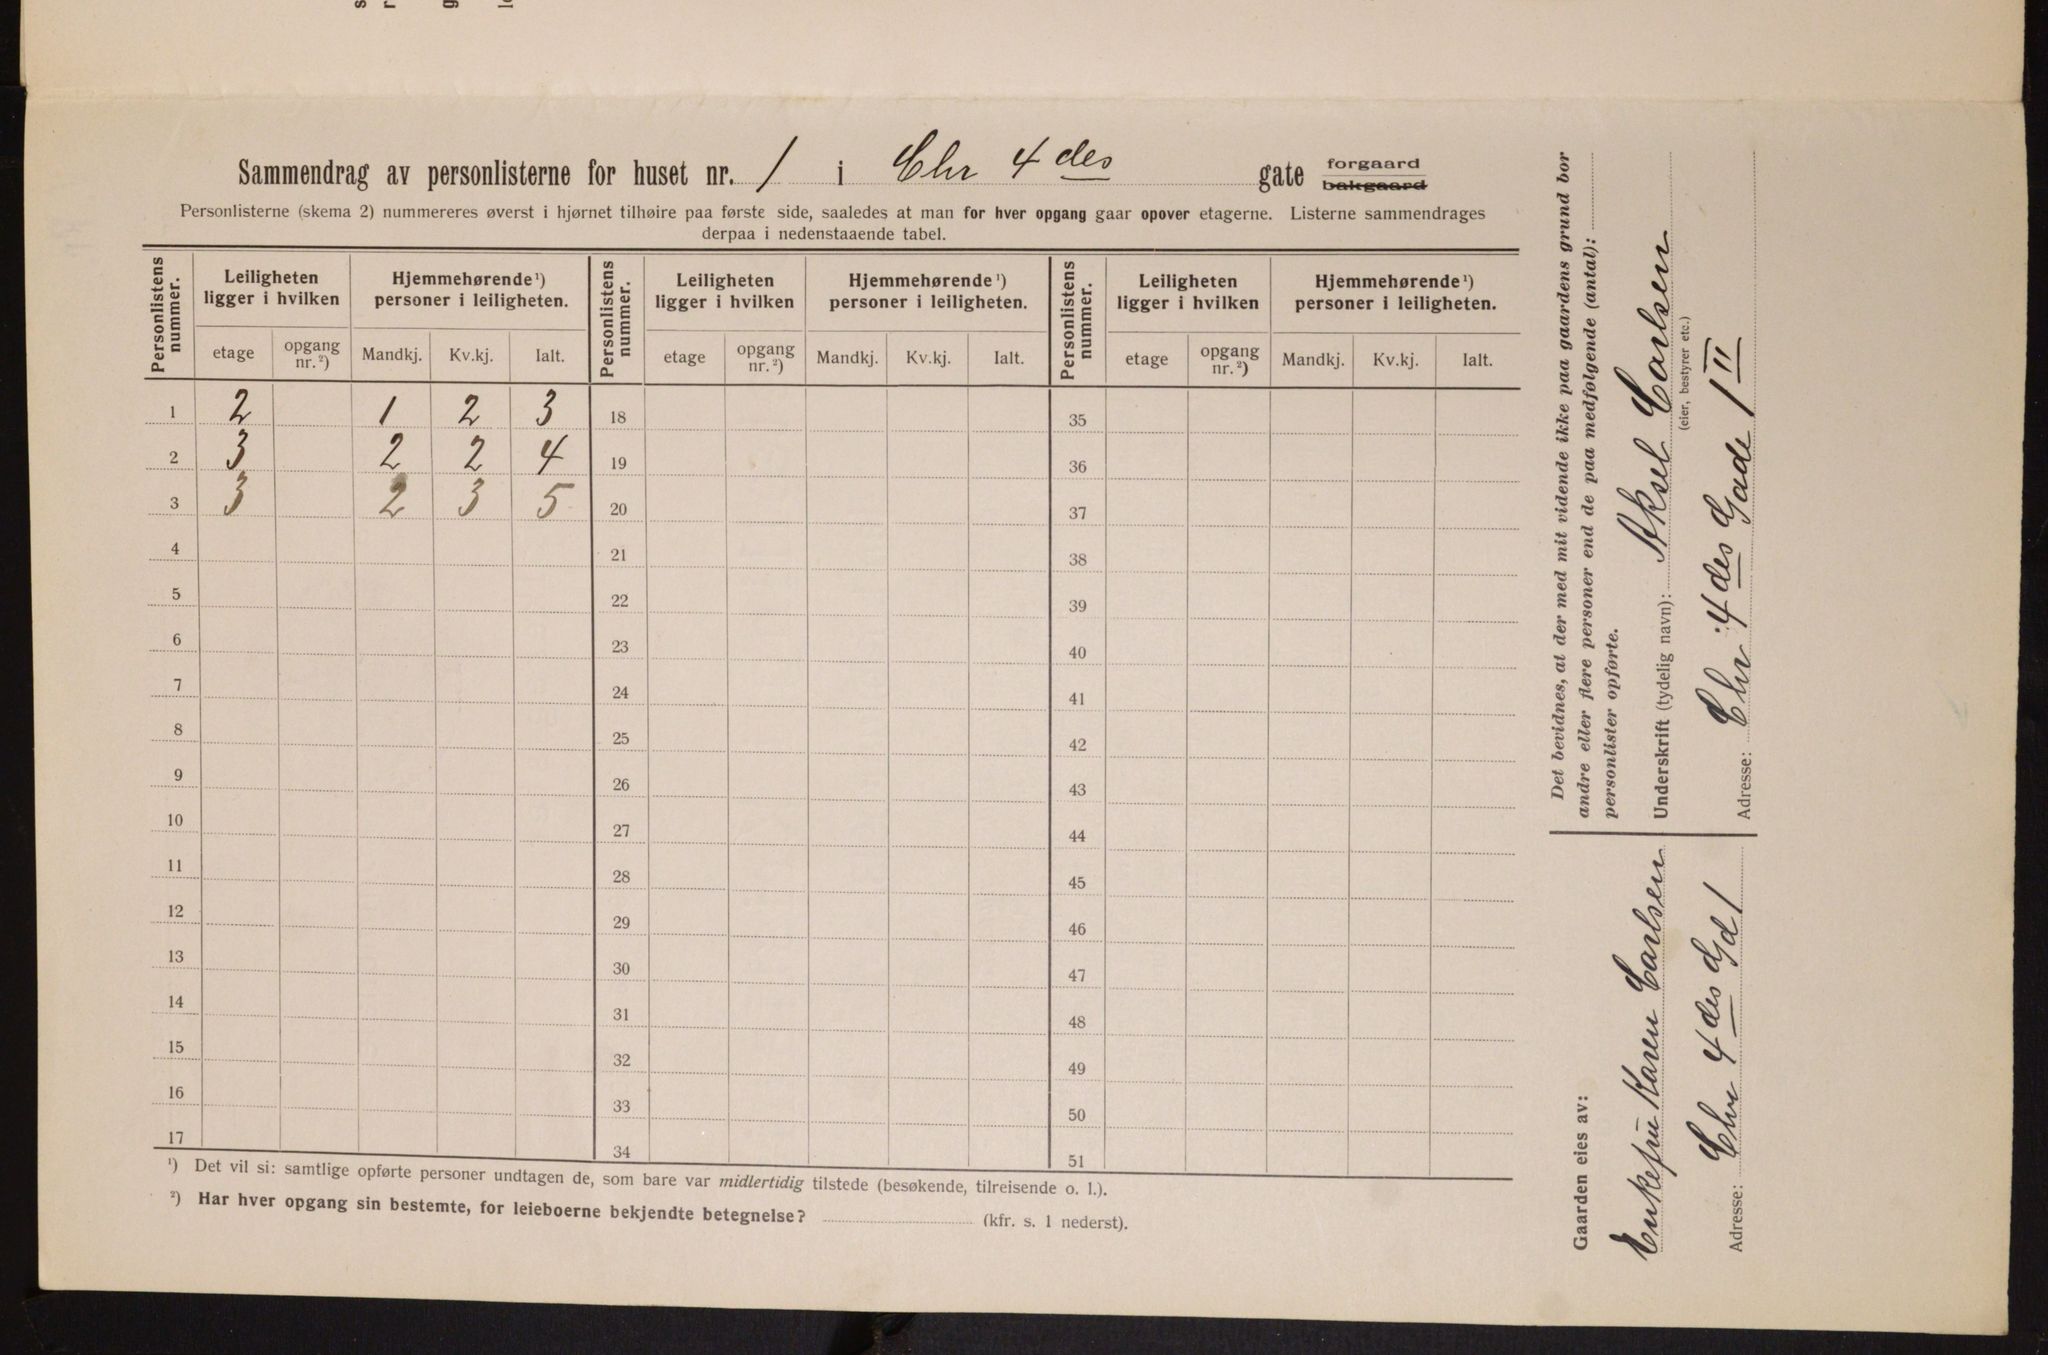 Sammendrag av personlisterne for huset nr. 1 i Chr 4 des gate forgaard bakgaard
Personlisterne (skema 2) nummereres øverst i hjørnet tilhøire paa første side, saaledes at man for hver opgang gaar opover etagerne. Listerne sammendrages
derpaa i nedenstaaende tabel.
Personlistens nummer. Leiligheten ligger i hvilken Hjemmehørende ¹) personer i leiligheten. Personlistens nummer. Leiligheten ligger i hvilken Hjemmehørende ¹) personer i leiligheten. Personlistens nummer. Leiligheten ligger i hvilken Hjemmehørende ¹) personer i leiligheten.
etage opgang nr. ²) Mandkj. Kv.kj. Ialt. etage opgang nr. ²) Mandkj. Kv.kj. Ialt. etage opgang nr. ²) Mandkj. Kv.kj. Ialt.
1 2 1 2 3 18 35
2 3 2 2 4 19 36
3 3 2 3 5 20 37
4 21 38
5 22 39
6 23 40
7 24 41
8 25 42
9 26 43
10 27 44
11 28 45
12 29 46
13 30 47
14 31 48
15 32 49
16 33 50
17 34 51
¹) Det vil si: samtlige opførte personer undtagen de, som bare var midlertidig tilstede (besøkende, tilreisende o. l.).
²) Har hver opgang sin bestemte, for leieboerne bekjendte betegnelse? (kfr. s. 1 nederst).
Gaarden eies av:
Enkefru Karen Carlsen
Adresse: Chr 4 des Gd 1
Det bevidnes, at der med mit vidende ikke paa gaardens grund bor
andre eller flere personer end de paa medfølgende (antal):
personlister opførte.
Underskrift (tydelig navn): Aksel Carlsen
(eier, bestyrer etc.)
Adresse: Chr 4 des Gade 1 II